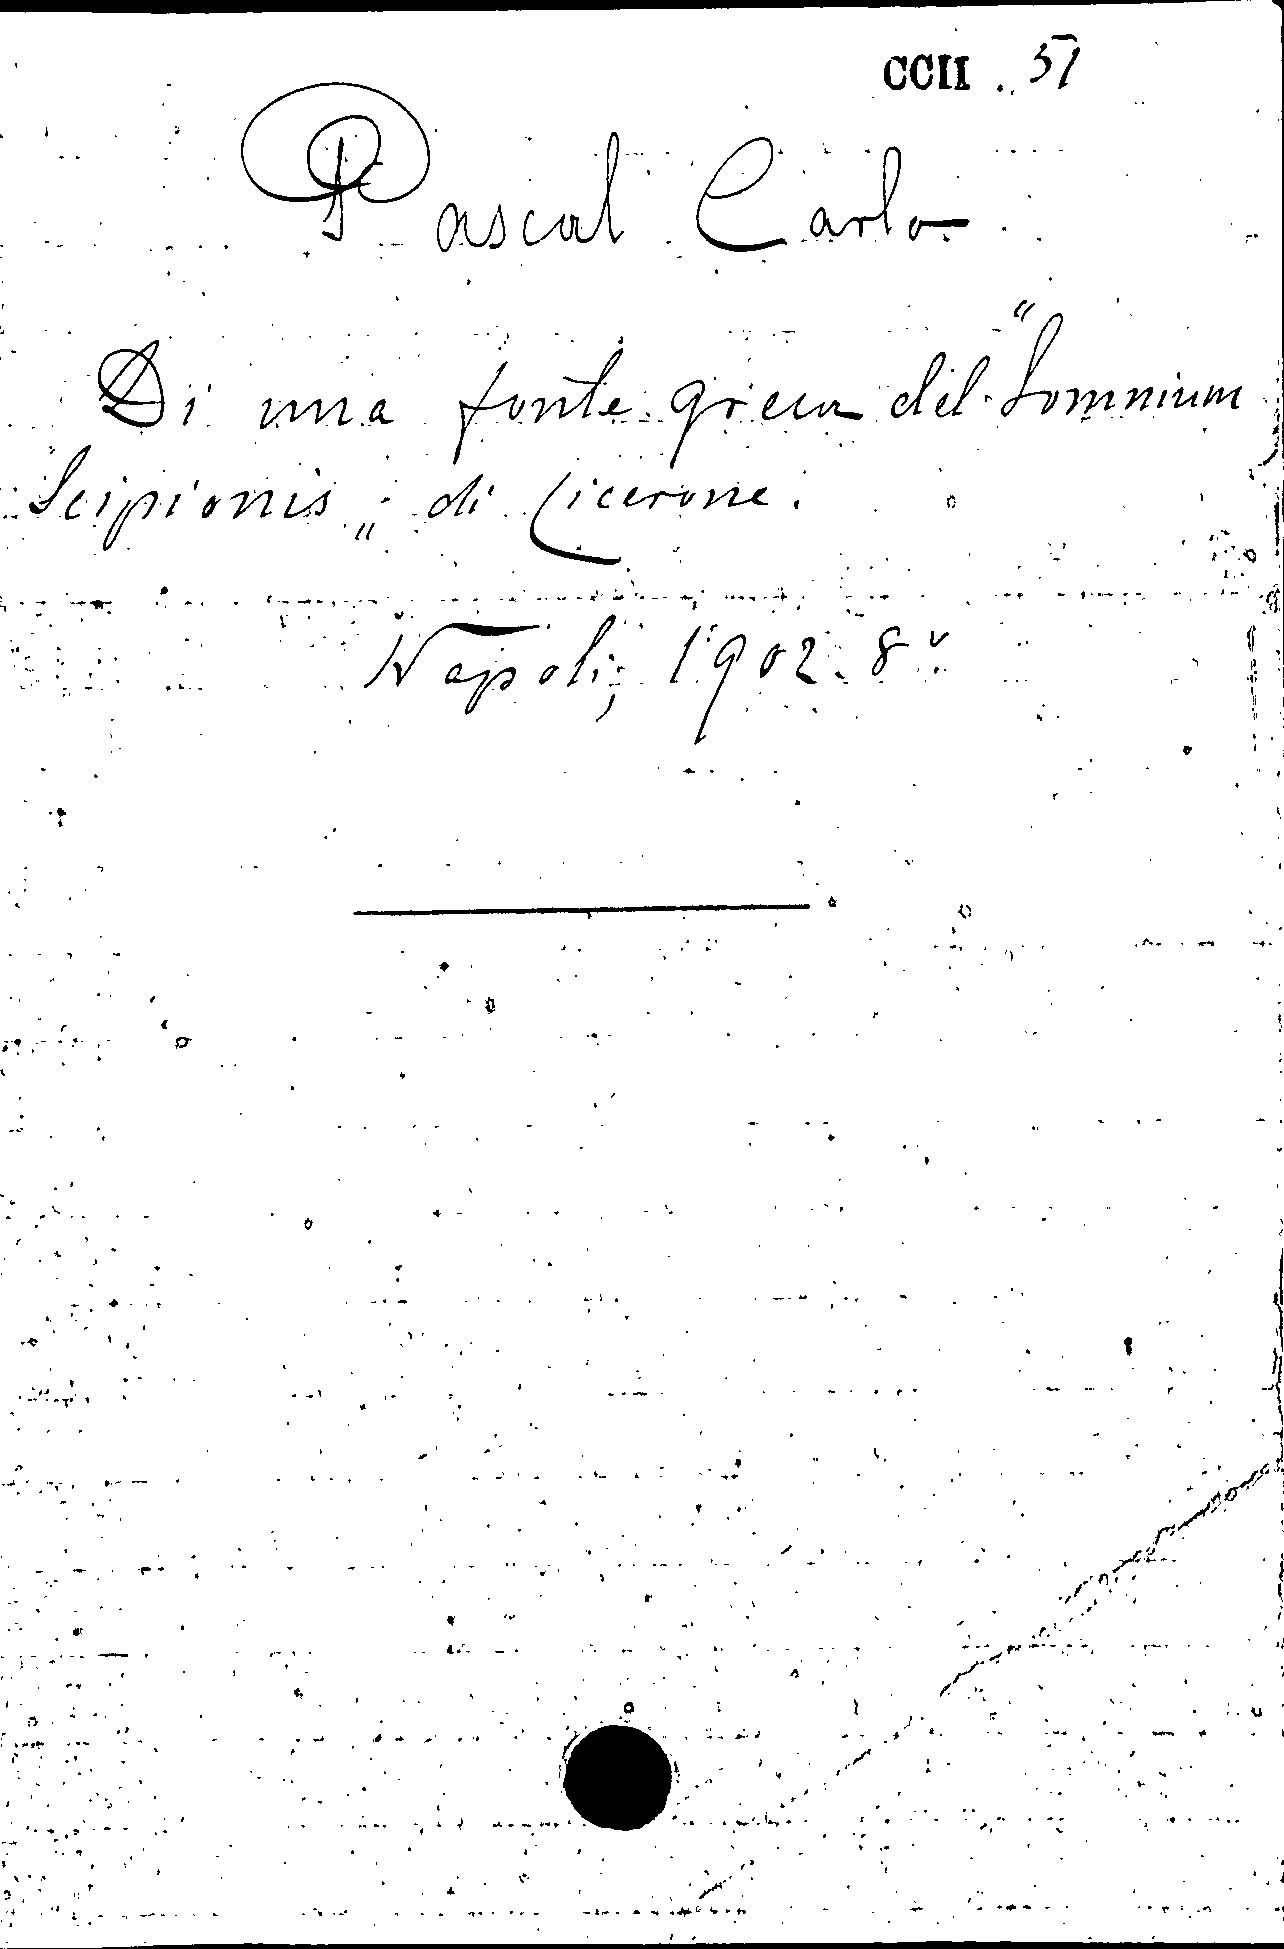 CCII. 51
Pascal Carlo
Di una fonte greca del "Somnium
Scipionis„ di Cicerone.
Napoli, 1902. 8º.